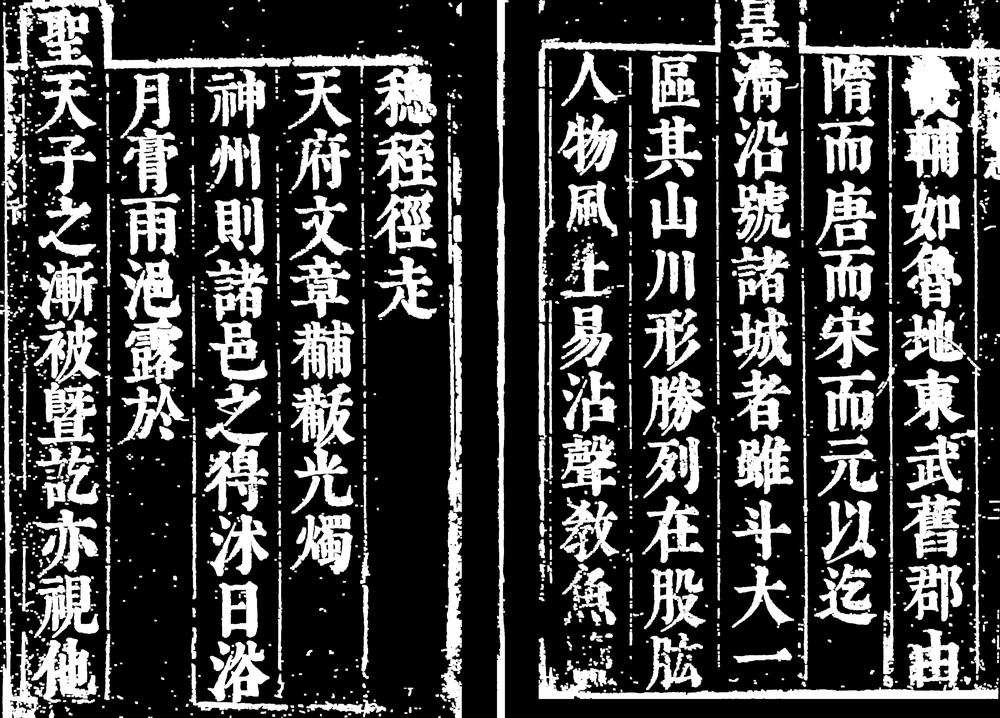 輔如魯地東武舊郡由
隋而唐而宋而元以迄
皇清沿號諸城者雖斗大一
區其山川形勝列在股肱
人物風土易沾聲教魚
穗秷徑走
天府文章黼黻光燭
神州則諸邑之得沐日浴
月膏雨浥露於
聖天子之漸被暨訖亦視他